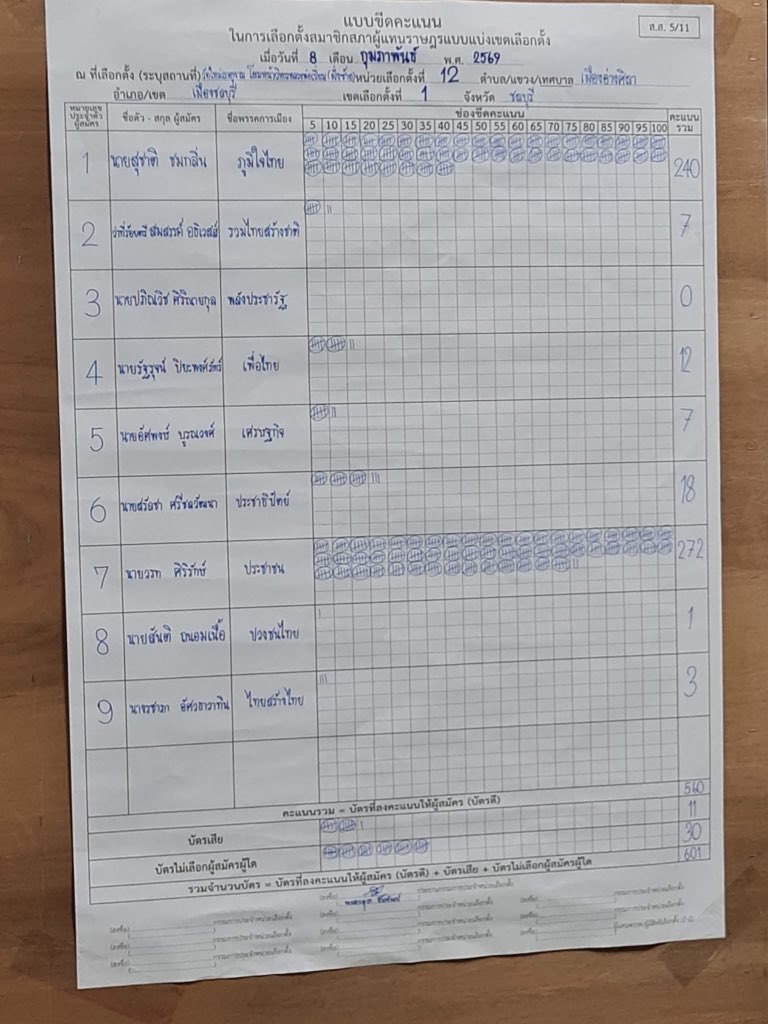 แบบขีดคะแนน
ส.ส. 5/11
ในการเลือกตั้งสมาชิกสภาผู้แทนราษฎรแบบแบ่งเขตเลือกตั้ง
เมื่อวันที่ 8 เดือน กุมภาพันธ์ พ.ศ. 2569
ณ ที่เลือกตั้ง (ระบุสถานที่) หน่วยเลือกตั้งที่ 12 ตำบล/แขวง/เทศบาล เมืองอ่างศิลา
อำเภอ/เขต เมืองชลบุรี เขตเลือกตั้งที่ 1 จังหวัด ชลบุรี
หมายเลขประจำตัวผู้สมัคร ชื่อตัว - สกุล ผู้สมัคร ชื่อพรรคการเมือง ช่องขีดคะแนน คะแนนรวม
5 10 15 20 25 30 35 40 45 50 55 60 65 70 75 80 85 90 95 100
1 นายสุชาติ ชมกลิ่น ภูมิใจไทย 240
2 ว่าที่ร้อยตรี สมสรรค์ รวมไทยสร้างชาติ 7
3 พลังประชารัฐ 0
4 เพื่อไทย 12
5 เศรษฐกิจ 7
6 ประชาธิปัตย์ 18
7 นายวรท ศิริรักษ์ ประชาชน 272
8 นายสันติ ถนอมเนื้อ ปวงชนไทย 1
9 ไทยสร้างไทย 3
คะแนนรวม = บัตรที่ลงคะแนนให้ผู้สมัคร (บัตรดี) 560
บัตรเสีย 11
บัตรไม่เลือกผู้สมัครผู้ใด 30
รวมจำนวนบัตร = บัตรที่ลงคะแนนให้ผู้สมัคร (บัตรดี) + บัตรเสีย + บัตรไม่เลือกผู้สมัครผู้ใด 601
(ลงชื่อ) ประธานกรรมการประจำหน่วยเลือกตั้ง
(ลงชื่อ) กรรมการประจำหน่วยเลือกตั้ง (ลงชื่อ) กรรมการประจำหน่วยเลือกตั้ง (ลงชื่อ) กรรมการประจำหน่วยเลือกตั้ง
(ลงชื่อ) กรรมการประจำหน่วยเลือกตั้ง (ลงชื่อ) กรรมการประจำหน่วยเลือกตั้ง (ลงชื่อ)
(ลงชื่อ) กรรมการประจำหน่วยเลือกตั้ง (ลงชื่อ) กรรมการประจำหน่วยเลือกตั้ง